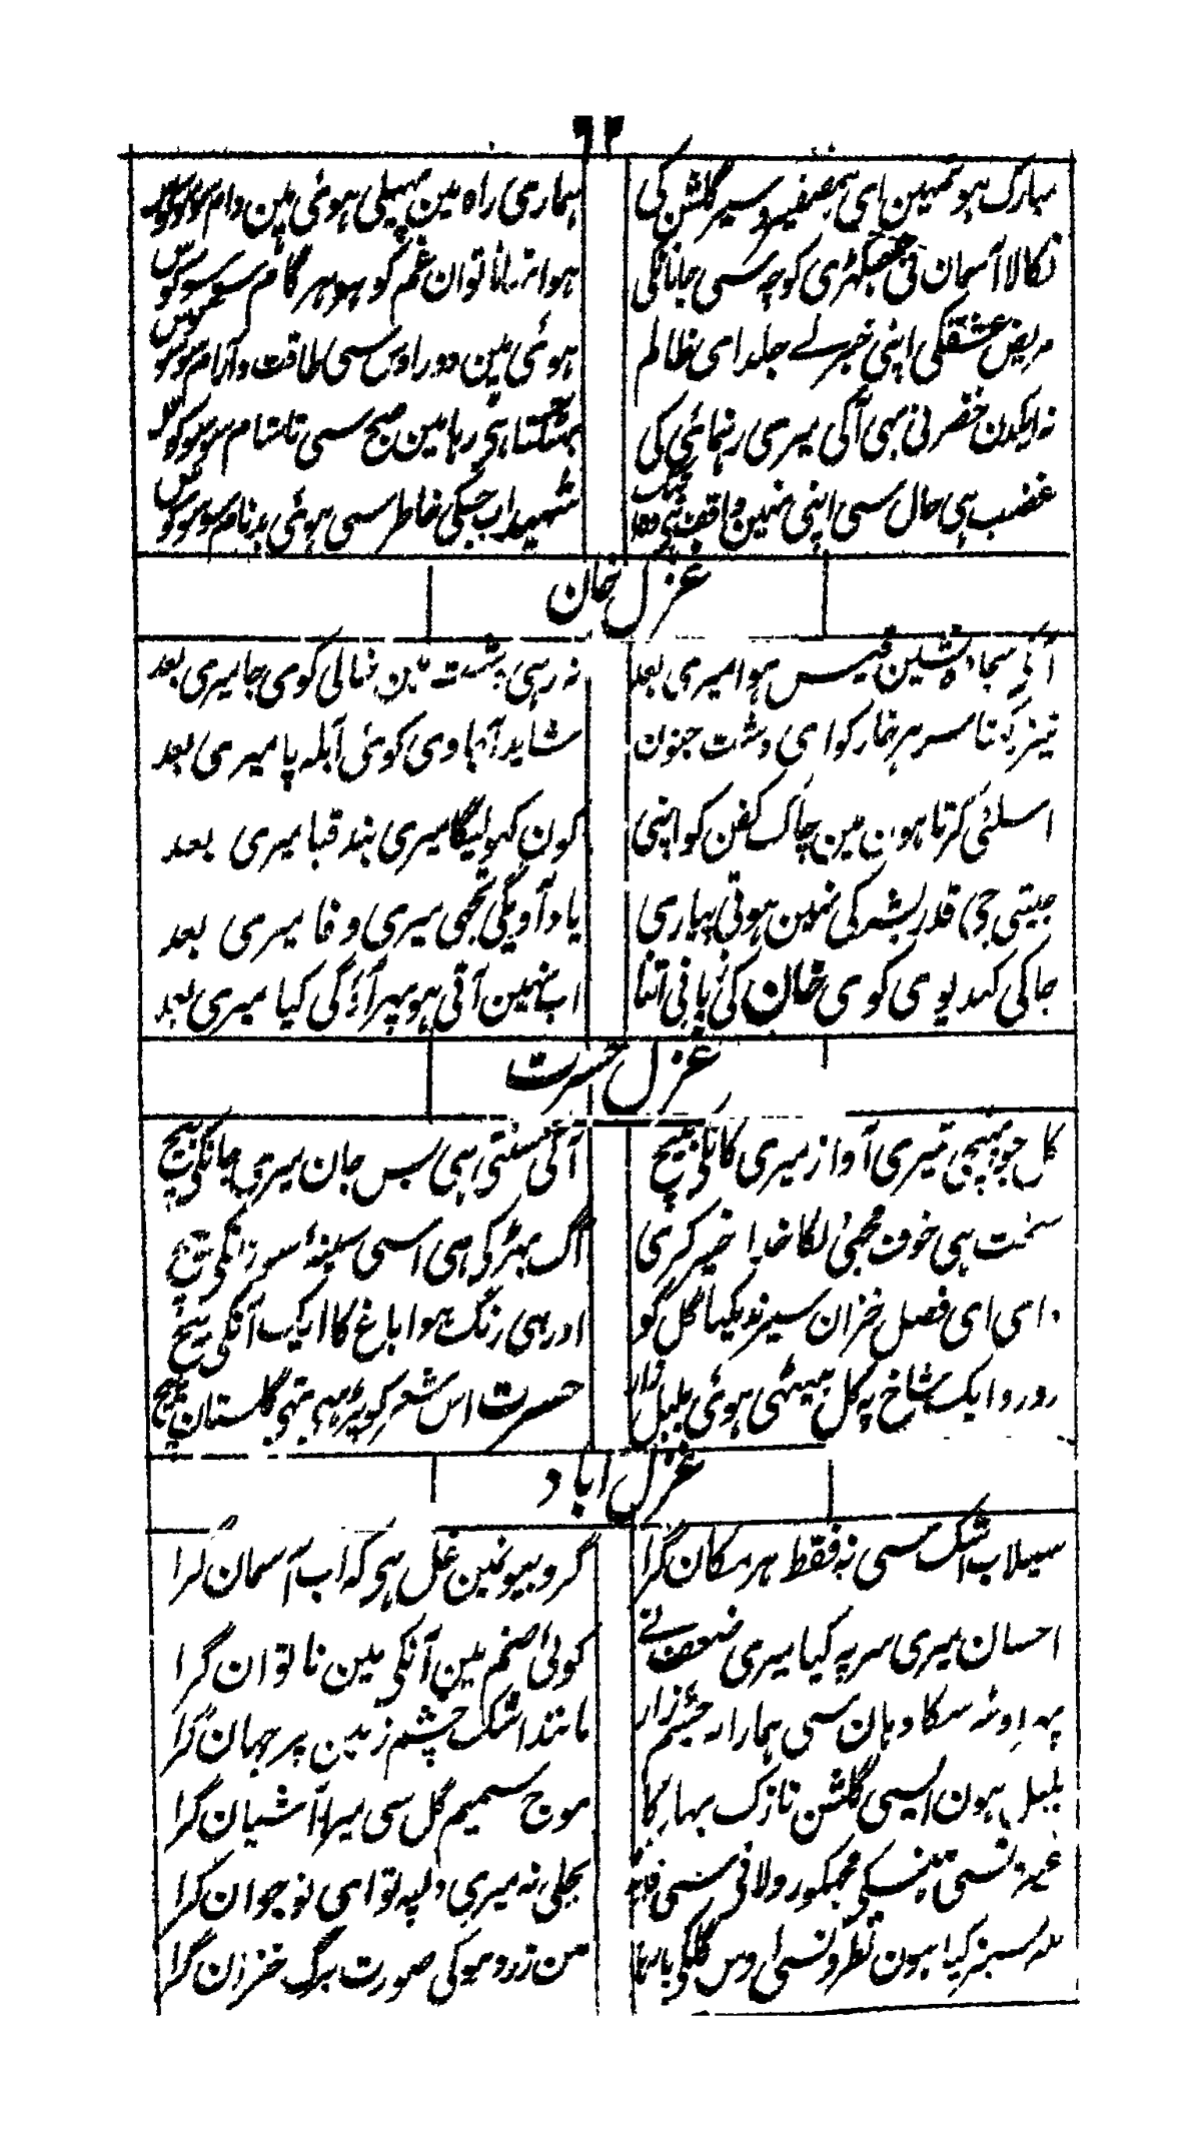 ٦٢
مبارک ہو تمہین ای ہمصفیرو سیر گلشن کی
ہماری راہ مین پہیلی ہوئی ہین دام سو سو کوس
نکالا آسمان نی جانانکی
ہوا نا توان غم کو ہر گام سو سو کوس
مریض عشقکی اپنی خبر لے جلد ای ظالم
ہوئی ہین دور اوس سی طاقت و آرام سو سو کوس
نہ ایکدن خضر نی بہی آکی میری رہنمائی کی
بہٹکتا ہی رہا مین صبح سی تا شام سو سو کوس
غضب ہی حال سی اپنی نہین واقف
شہید اب جسکی خاطر سی ہوئی بدنام سو سو کوس
غزل خان
آکی سجادہ نشین قیس ہوا میری بعد
نہ رہی دشت مین خالی کوی جا میری بعد
تیز رکہنا سر ہر خار کو ای دشت جنون
شاید آجاوی کوئی آبلہ پا میری بعد
اسلئی کرتا ہون مین چاک کفن کو اپنی
کون کہولیگا میری بند قبا میری بعد
جیتی جی قدر بشر کی نہین ہوتی پیاری
یاد آویگی تجہی میری وفا میری بعد
جاکی کہدیوی کوی خان کی زبانی اتنا
اب نہین آتی ہو پہر آؤگی کیا میری بعد
غزل حسرت
کل جو پہنچی تیری آواز میری کانکی بیچ
آگئی سنتی ہی بس جان میری جانکی بیچ
سخت ہی خوف مجہی لگا خدا خیر کری
آگ بہڑکی ہی اسی سینۂ سوزانکی بیچ
وای ای فصل خزان سیر ندیکہا گل کو
اور ہی رنگ ہوا باغ کا ایک آنکی بیچ
رو رو ایک شاخ پہ گل بیٹہی ہوئی بلبل زار
حسرت اس شعر کو پڑہی تہی گلستان بیچ
غزل اباد
سیلاب اشک سی نہ فقط ہر مکان گرا
کروبیونمین غل ہی کہ اب آسمان گرا
احسان میری سر پہ کیا میری ضعف نے
کوئی صنم مین آنکی مین ناتوان گرا
پہر اوٹہ سکا وہان سی ہمارا نہ جسم زار
مانند اشک چشم زمین پر جہان گرا
بلبل ہون ایسی گلشن نازک بہار کا
موج شمیم گل سی میرا آشیان گرا
غیرونسی ہنسکی مجہکو رولانی سی
بجلی نہ میری دلپہ تو ای نوجوان گرا
سرسبز کیا ہون نظرونسی اوس گلکی
مین زرد ہوکی صورت برگ خزان گرا